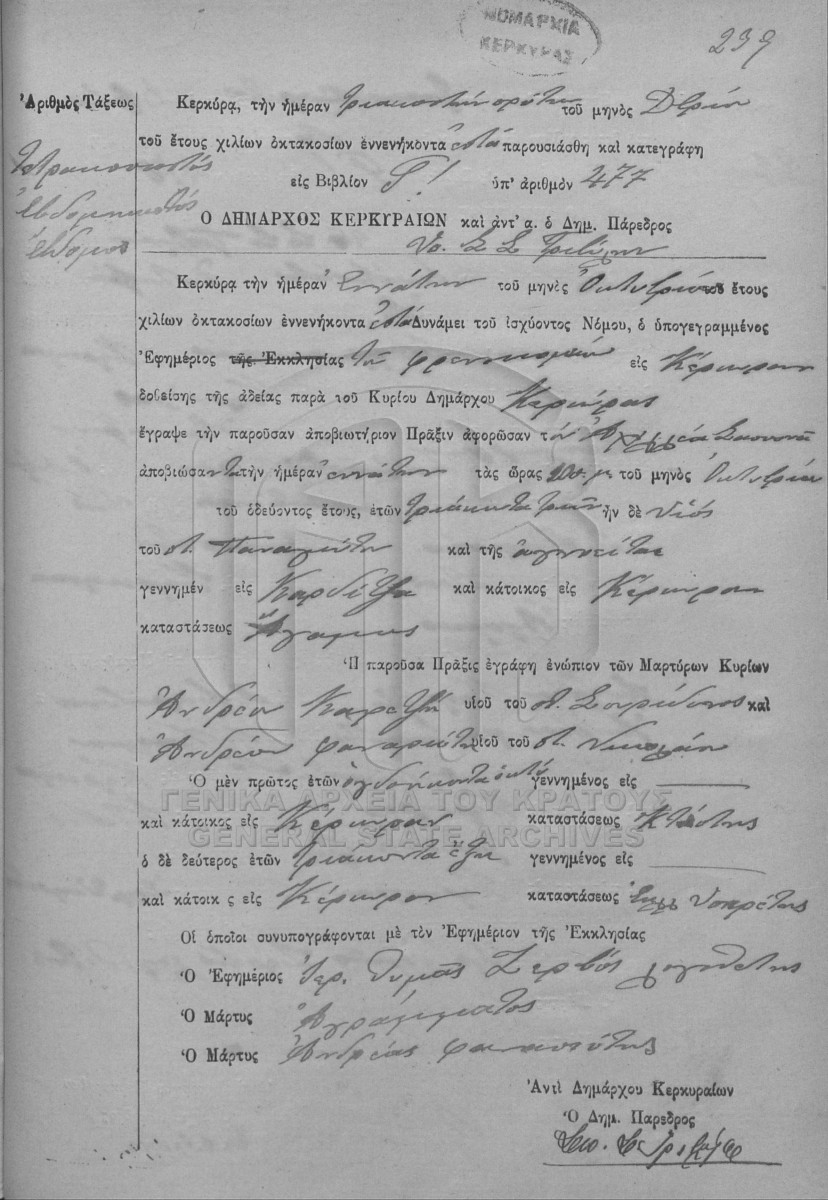 ΝΟΜΑΡΧΙΑ
ΚΕΡΚΥΡΑΣ
239
Ἀριθμὸς Τάξεως
Τετρακοσιοστός
ἑβδομηκοστός
ἕβδομος
Κερκύρᾳ, τὴν ἡμέραν τριακοστὴν πρώτην τοῦ μηνὸς Δ/βρίου
τοῦ ἔτους χιλίων ὀκτακοσίων ἐννενήκοντα ἑπτὰ παρουσιάσθη καὶ κατεγράφη
εἰς Βιβλίον Γ! ὑπ' ἀριθμὸν 477
Ο ΔΗΜΑΡΧΟΣ ΚΕΡΚΥΡΑΙΩΝ καὶ ἀντ' α. ὁ Δημ. Πάρεδρος
Κερκύρᾳ τὴν ἡμέραν ἐννάτην τοῦ μηνὸς Ὀκτωβρίου τοῦ ἔτους
χιλίων ὀκτακοσίων ἐννενήκοντα ἑπτὰ Δυνάμει τοῦ ἰσχύοντος Νόμου, ὁ ὑπογεγραμμένος
Ἐφημέριος τῆς Ἐκκλησίας τοῦ εἰς Κέρκυραν
δοθείσης τῆς ἀδείας παρὰ τοῦ Κυρίου Δημάρχου Κερκύρας
ἔγραψε τὴν παροῦσαν ἀποβιωτήριον Πρᾶξιν ἀφορῶσαν τὸν
ἀποβιώσαντα τὴν ἡμέραν ἐννάτην τὰς ὥρας τοῦ μηνὸς Ὀκτωβρίου
τοῦ ὁδεύοντος ἔτους, ἐτῶν τριάκοντα τριῶν ἦν δὲ υἱὸς
τοῦ π. Παναγιώτη καὶ τῆς ἀγνοεῖται
γεννημέν εἰς Καρδίτζα καὶ κάτοικος εἰς Κέρκυραν
καταστάσεως Ἄγαμος
Ἡ παροῦσα Πρᾶξις ἐγράφη ἐνώπιον τῶν Μαρτύρων Κυρίων
Ἀνδρέου υἱοῦ τοῦ π. Σπυρίδωνος καὶ
Ἀνδρέου Φαναριώτη υἱοῦ τοῦ π. Νικολάου
Ὁ μὲν πρῶτος ἐτῶν ὀγδοήκοντα ὀκτὼ γεννημένος εἰς
καὶ κάτοικος εἰς Κέρκυραν καταστάσεως Κτίστης
ΓΕΝΙΚΑ ΑΡΧΕΙΑ ΤΟΥ ΚΡΑΤΟΥΣ
GENERAL STATE ARCHIVES
ὁ δὲ δεύτερος ἐτῶν τριάκοντα ἕξ γεννημένος εἰς
καὶ κάτοικ ς εἰς Κέρκυραν καταστάσεως Ὑπηρέτης
Οἱ ὁποῖοι συνυπογράφονται μὲ τὸν Ἐφημέριον τῆς Ἐκκλησίας
Ὁ Ἐφημέριος Ἱερ. Θωμᾶς Ζερβός
Ὁ Μάρτυς Ἀγράμματος
Ὁ Μάρτυς Ἀνδρέας Φαναριώτης
Ἀντὶ Δημάρχου Κερκυραίων
Ὁ Δημ. Πάρεδρος